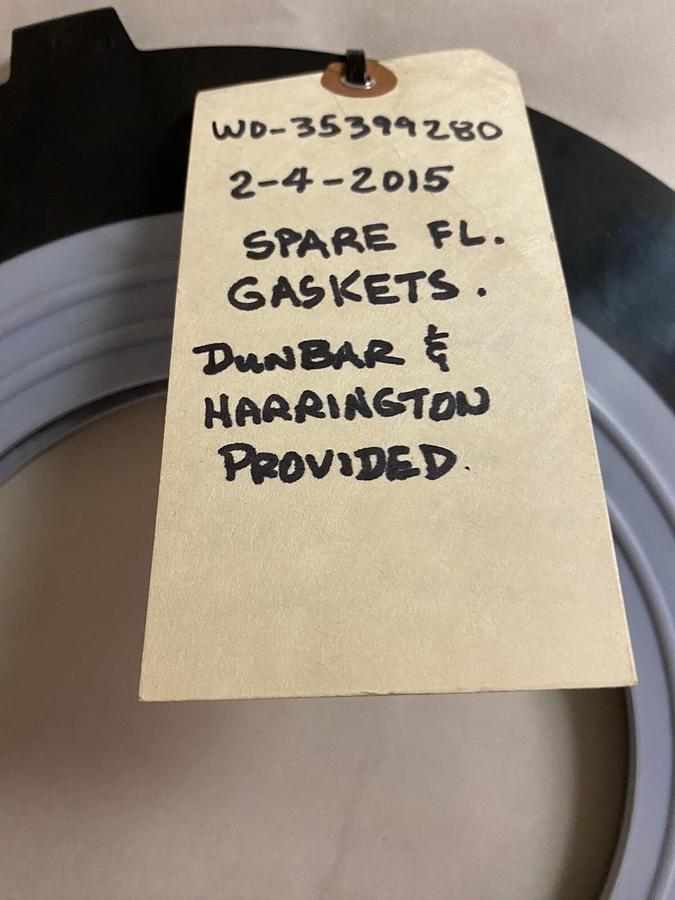 WO-35399280
2-4-2015
SPARE FL.
GASKETS.
DUNBAR &
HARRINGTON
PROVIDED.